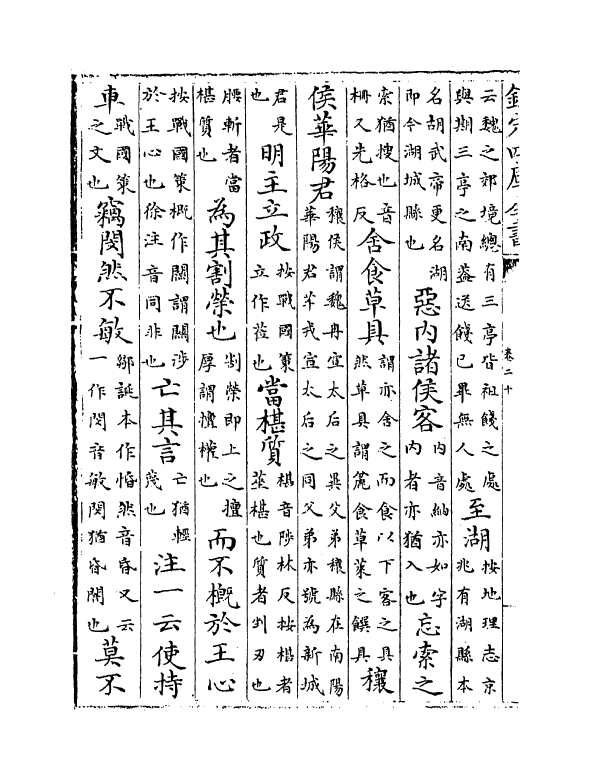 欽定四庫全書
卷二十
云魏之郊境總有三亭皆祖餞之處與期三亭之南葢送餞已畢無人處至湖按地理志京兆有湖縣本
名胡武帝更名湖即今湖城縣也惡内諸侯客内音納亦如字内者亦猶入也忘索之
索猶搜也音柵又先格反舍食草具謂亦舍之而食以下客之具然草具謂麄食草菜之饌具穰
侯華陽君穰侯謂魏冉宣太后之異父弟穰縣在南陽華陽君芊戎宣太后之同父弟亦號為新城
君是也明主立政按戰國策立作莅也當椹質椹音陟林反按椹者莝椹也質者剉刃也
腰斬者當椹質也為其割榮也割榮即上之擅厚謂擅權也而不概於王心
按戰國策概作關謂關涉於王心也徐注音同非也亡其言亡猶輕蔑也注一云使持
車戰國策之文也竊閔然不敏鄒誕本作惛然音昏又云一作閔音敏閔猶昏閉也莫不